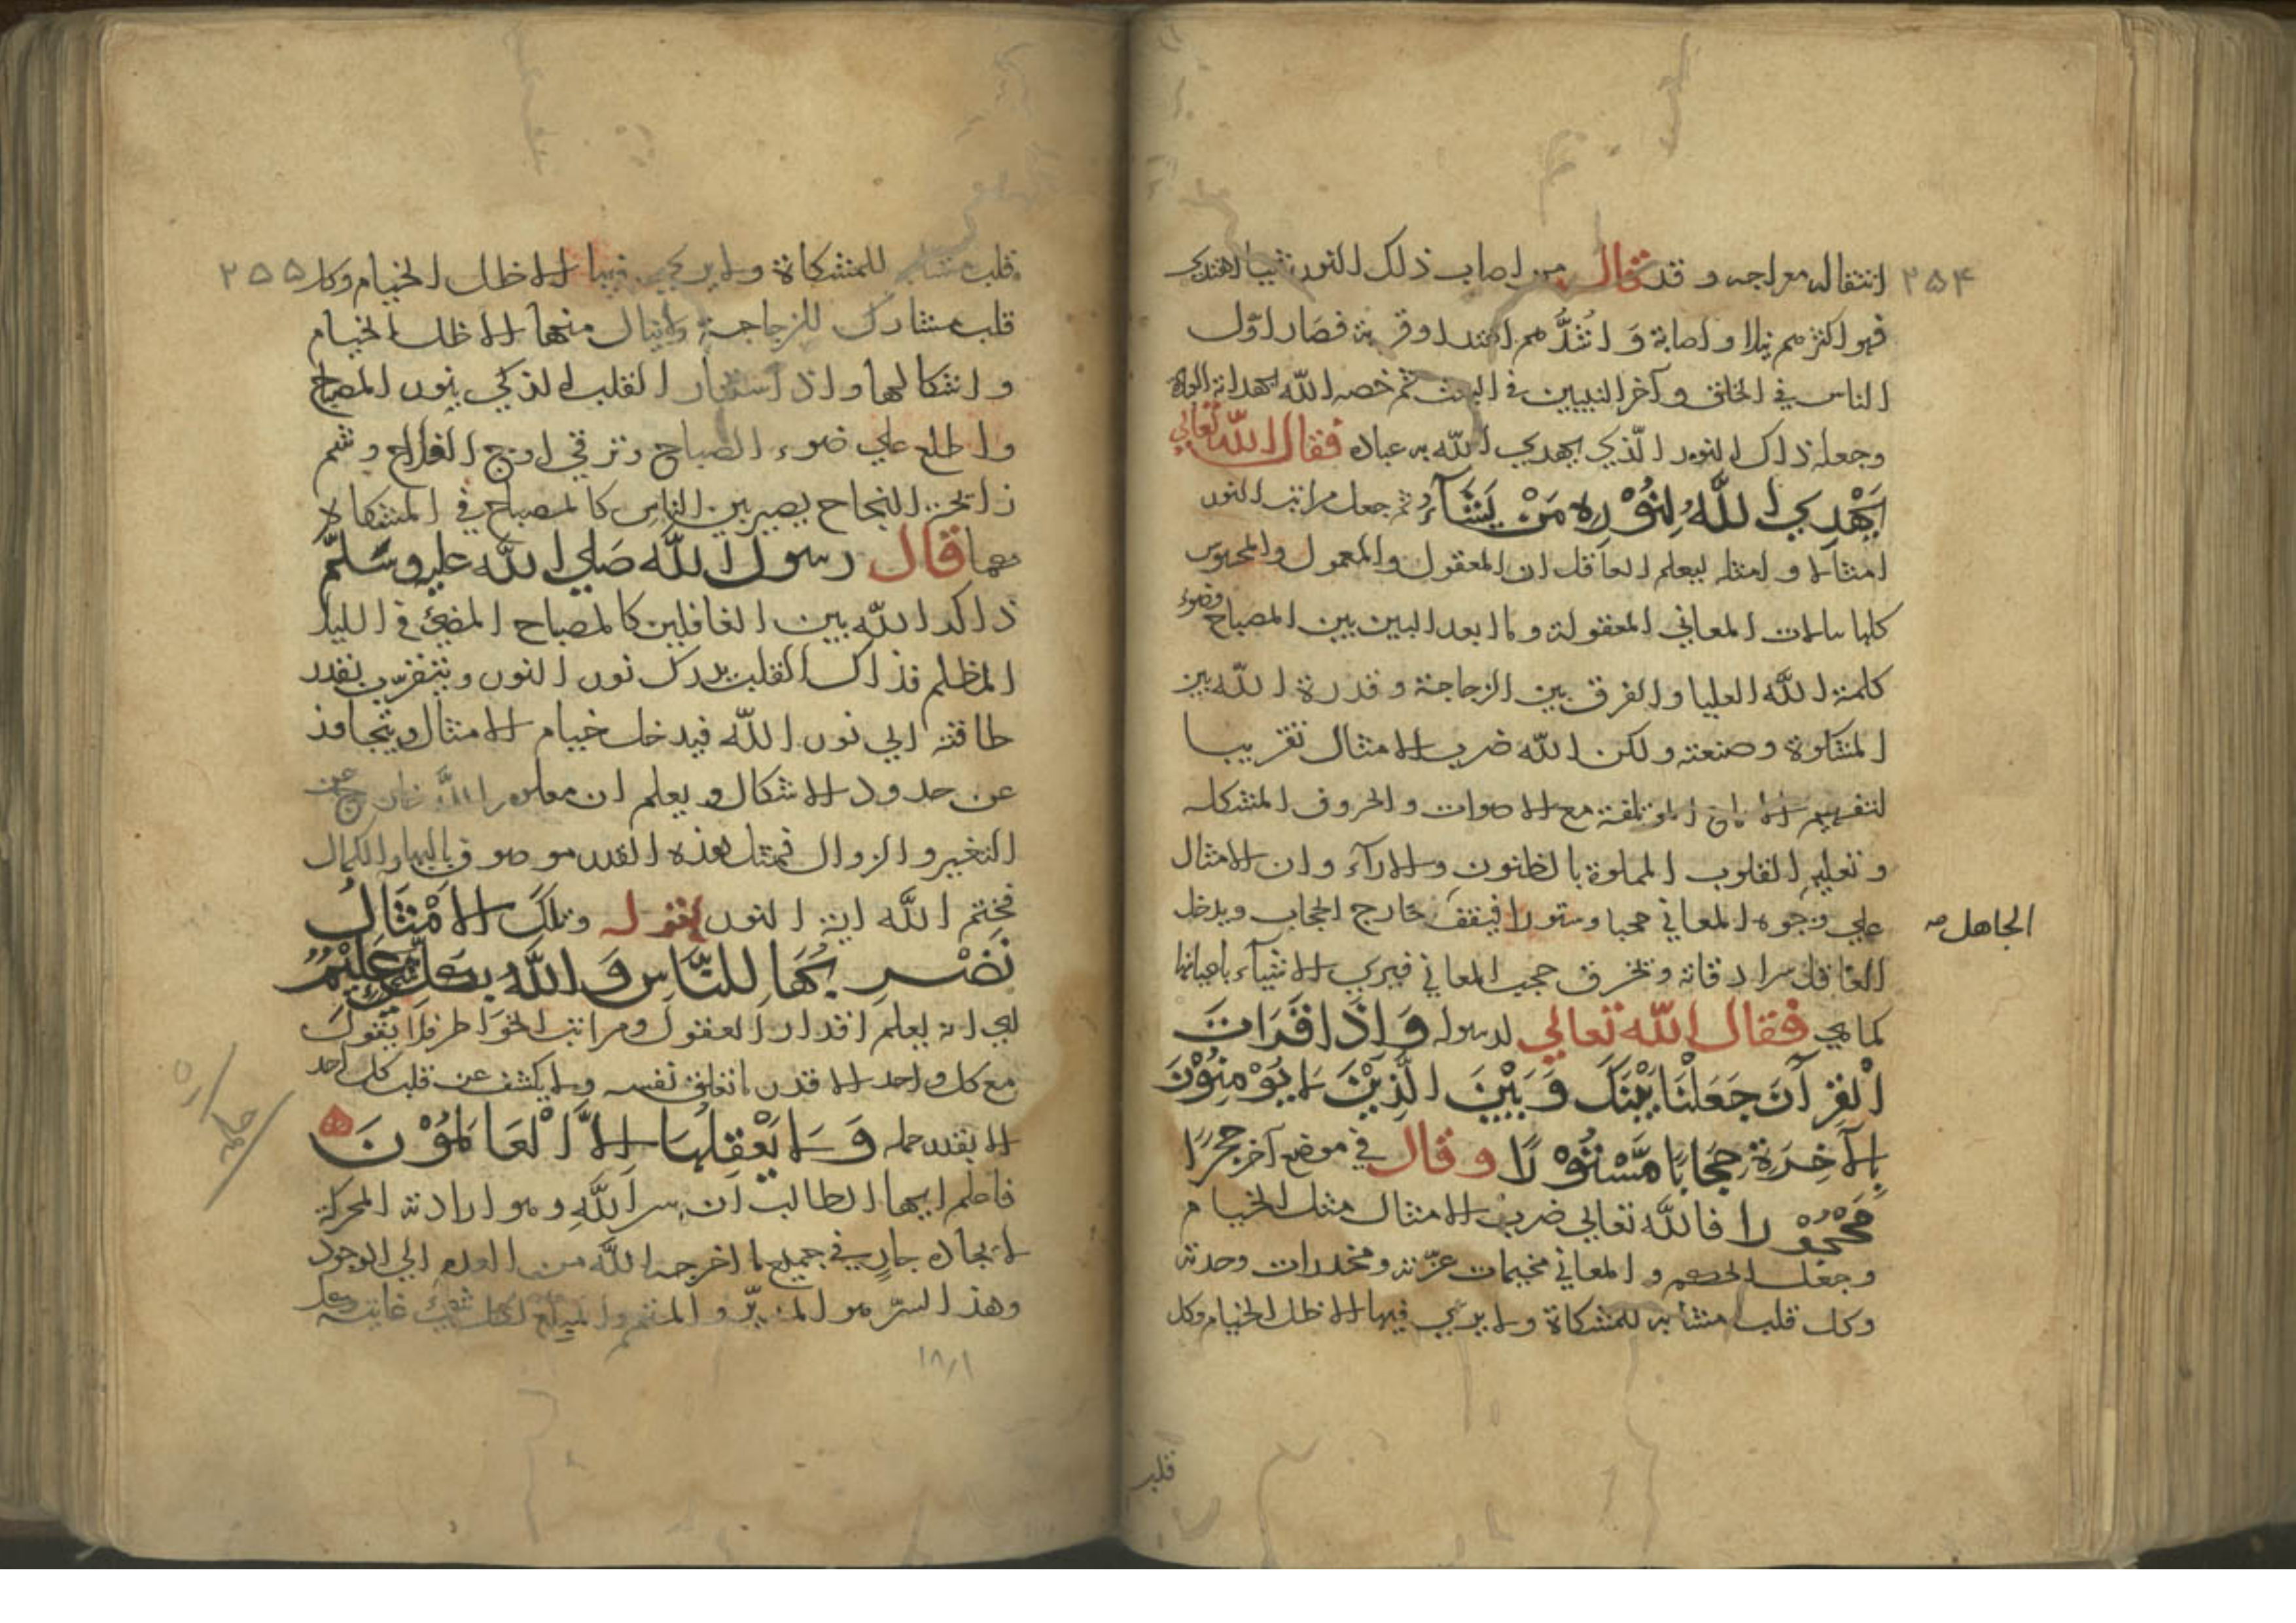 ٢٥٤
انتقاله معراجه و قد قال من اصاب ذلك النور شيئا اهتدى
فهو اكثرهم نيلا و اصابة وَ اشدُّهم اهتداء وقربة فصار اوّل
الناس في الخلق و آخر النبيين في البعث ثم خصه الله بهداية الولاة
وجعله ذاك النور الّذي يهدي الله به عباده فقال الله تعالي
يَهْدِي اللَّهُ لِنُوْرِهِ مَنْ يَشَآءُ ثم جعل مراتب النور
امثالا و امثله ليعلم العاقل ان المعقول والمعمول والمحسوس
كلها سلمات المعاني المعقولة وما ابعد البين بين المصباح وضوء
كلمة الله العليا والفرق بين الزجاجة و قدرة الله بين
المشكوة و صنعته و لكن الله ضرب الامثال تقريبا
لتفهيم المؤتلفة مع الاصوات والحروف المشكله
و تعليم القلوب المملوة بالظنون والارآء وان الامثال
علي وجوه المعاني حجبا وستورا فيقف خارج الحجاب ويدخل
الجاهل صه
العاقل سرادقاته وتخرق حجب المعاني فيري الاشيآء باعيانها
كما هي فقال الله تعالي لرسوله وَاِذَا قَرَاتَ
الْقُرْآنَ جَعَلْنَا بَيْنَكَ وَبَيْنَ الَّذِيْنَ لَا يُوْمِنُوْنَ
بِالآخِرَةِ حِجَابًا مَّسْتُوْرًا وقال في موضع آخر حِجْرًا
مَّحْجُوْرا فالله تعالي ضرب الامثال مثل الخيام
وجعل الحكم و المعاني مخيمات عزّته و مخدرات وحدته
وكل قلب مشابه للمشكاة ولا يري فيها الا ظل الخيام وكل
قلب
٢٥٥
قلب مشابه للمشكاة ولا يري فيها الا ظل الخيام وكل
قلب مشارك للزجاجة ولا ينال منها الا ظل الخيام
و اشكالها و اذا استنار القلب الذكي بنور المصباح
واطلع علي ضوء الصباح وترقي اوج الفلاح وشم
رايحة النجاح يصير بين الناس كالمصباح في المشكاة
مهما قال رسول الله صَلي الله عليه وسَلّم
ذاكر الله بين الغافلين كالمصباح المضئ في الليل
المظلم فذاك القلب يدرك نور النور ويتقرّب بقدر
طاقته الي نور الله فيدخل خيام الامثال ويتجاوز
عن حدود الاشكال و يعلم ان الله خارج عن
التغير و الزوال فمثل هذه القدر موصوف بالبهاء والكمال
فختم الله اية النور بقوله وتلكَ الاَمْثَالُ
نَضْرِبُهَا لِلنَّاسِ وَاللّهُ بِكُلِّ شَيءٍ عَلِيْمٌ
يعني انه يعلم اقدار العقول ومراتب الخواطر فلا يقول
مع كل واحد الا قدر ما تعلق نفسه ولا يكشف عن قلب كل احد
الا بقدر حمله وَلَا يَعْقِلُهَا اِلاَّ الْعَالِمُوْنَ
فاعلم ايها الطالب ان سر اللهِ وهو ارادته المحركة
لايجاده جارٍ في جميع ما اخرجه الله من العدم الي الوجود
وهذا السرّ هو المدبّر و المتمم والمبلغ لكل شئ غايته
١٨/١